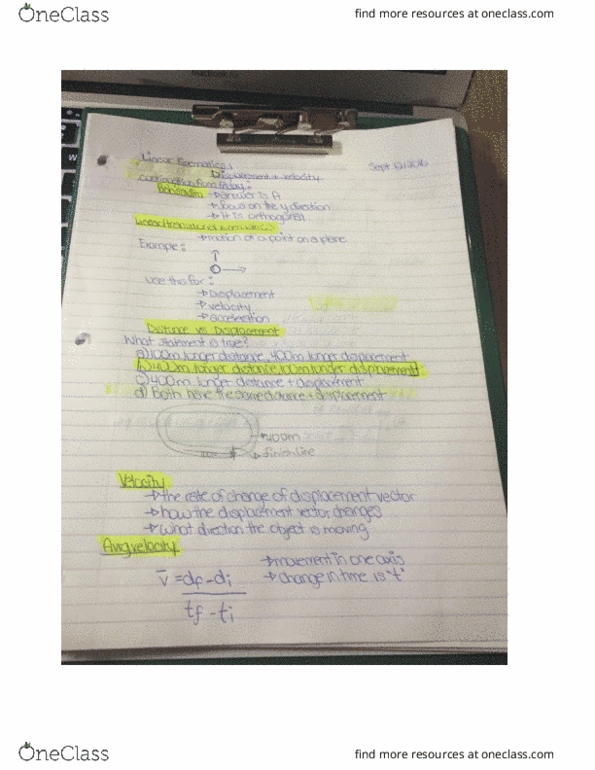 OneClass
find more resources at oneclass.com
Linear Kinematics:
Sept 12/2016
Displacement + velocity
Continuation from Friday:
→ answer is A
→ focus on the y direction
→ it is orthogonal
Linear
→ motion of a point on a plane
Example:
Use this for:
→ Displacement
→ velocity
→ acceleration
Distance vs Displacement
What statment is true?
a) 100m longer distance, 400m longer displacement
b) 400m longer distance, 100m longer displacement
c) 400m longer distance + displacement
d) Both have the same distance + displacement
400m
→ finish line
100m
Velocity
→ the rate of change of displacement vector
→ how the displacement vector changes
→ what direction the object is moving
Avg velocity
→ movement in one axis
→ change in time is "t"
v̄ = df - di
tf - ti
OneClass
find more resources at oneclass.com